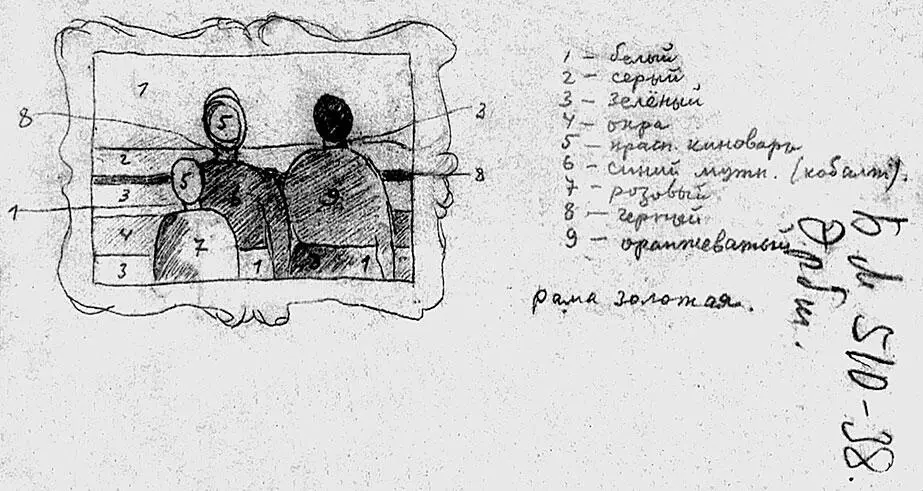 1 – белый
2 – серый
3 – зелёный
4 – охра
5 – красн. киноварь
6 – синий мутн. (кобальт).
7 – розовый
8 – черный
9 – оранжеватый
рама золотая.
1
8
3
5
2
5
8
3
6
9
1
4
7
3
1
1